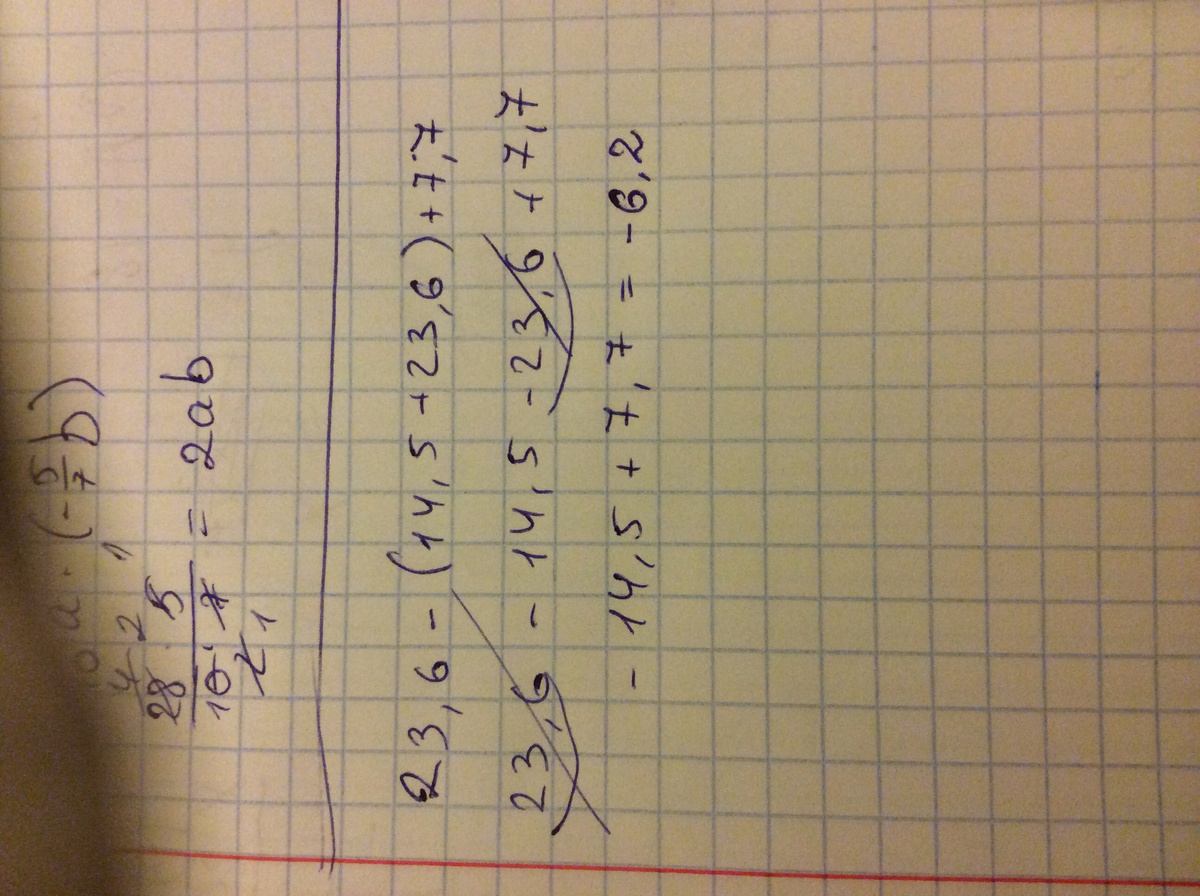 a · (-5/7 b)
28 · 5 / 10 · 7 = 2ab
23,6 - (14,5 + 23,6) + 7,7
23,6 - 14,5 - 23,6 + 7,7
- 14,5 + 7,7 = -6,2